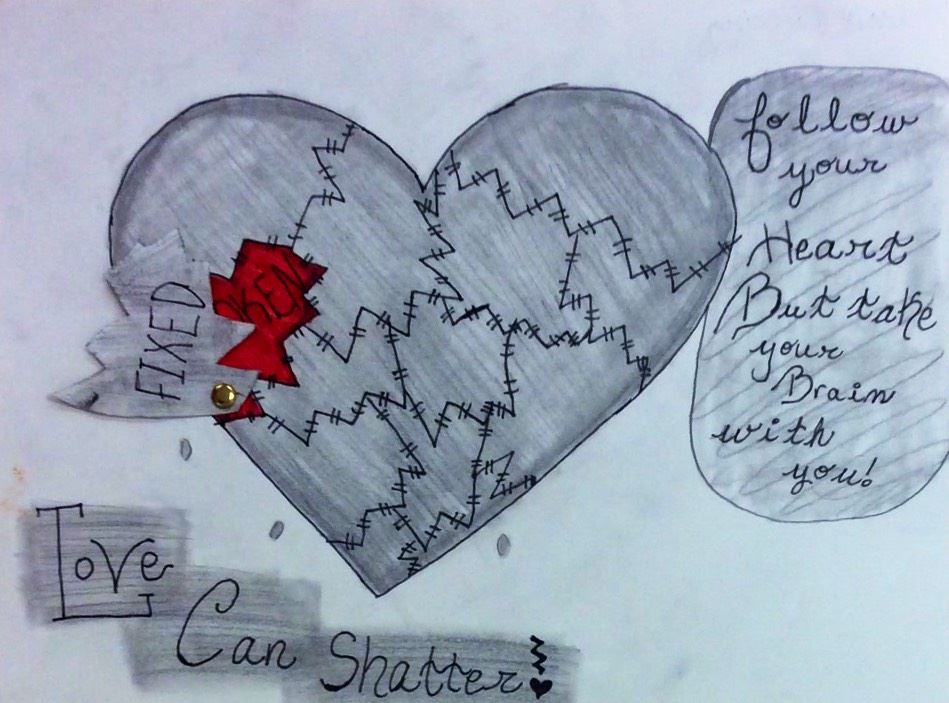 follow
your
Heart
But take
your
Brain
with
you!
FIXED
KEN
Love
Can
Shatter!